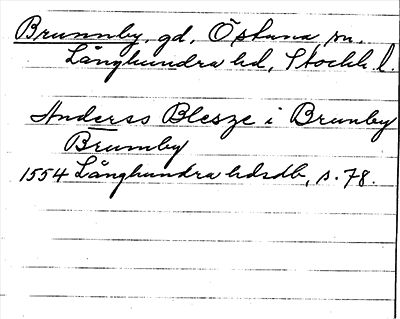 Brunnby, gd, Östuna sn,
Långhundra hd, Stockh. l.
Anderss Blesze i Brunby
Brumby
1554 Långhundra hdsdb, s. 78.